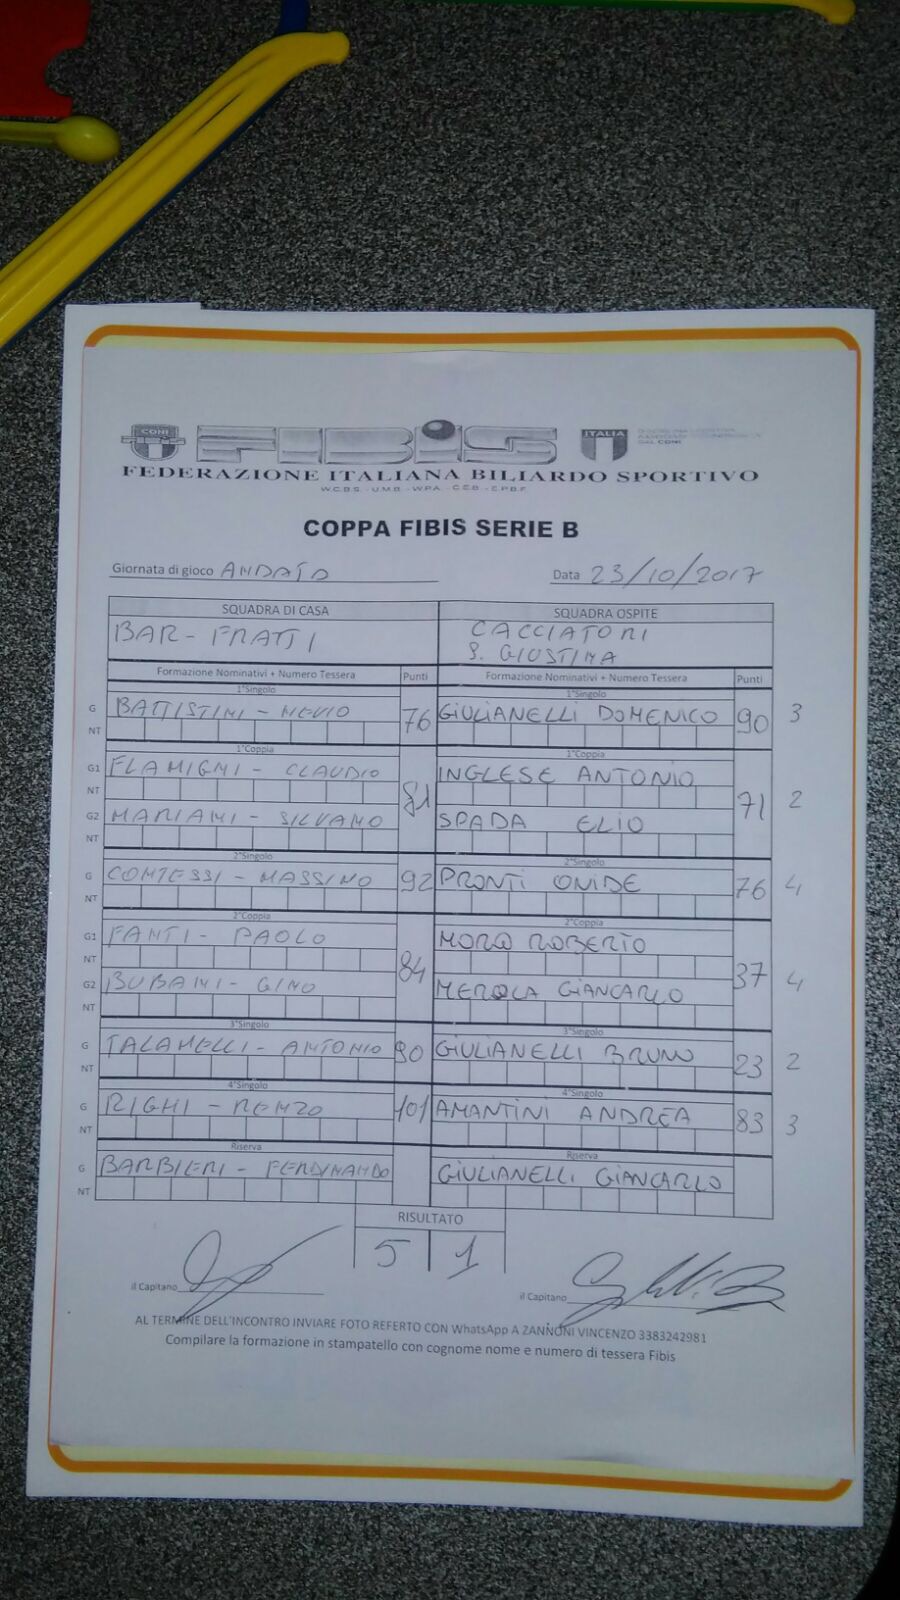 CONI
FIBiS
ITALIA
FEDERAZIONE ITALIANA BILIARDO SPORTIVO
W.C.B.S. - U.M.B. - W.P.A. - C.E.B. - E.P.B.F.
COPPA FIBIS SERIE B
Giornata di gioco ANDATA Data 23/10/2017
SQUADRA DI CASA SQUADRA OSPITE
BAR - FRATTI CACCIATORI
S. GIUSTINA
Formazione Nominativi + Numero Tessera Punti Formazione Nominativi + Numero Tessera Punti
1°Singolo 1°Singolo
G BATTISTINI - NEVIO 76 GIULIANELLI DOMENICO 90 3
NT
1°Coppia 1°Coppia
G1 FLAMIGNI - CLAUDIO INGLESE ANTONIO
NT 81 71 2
G2 MARIANI - SILVANO SPADA ELIO
NT
2°Singolo 2°Singolo
G CONTESSI - MASSIMO 92 PRONTI ONIDE 76 4
NT
2°Coppia 2°Coppia
G1 FANTI - PAOLO MORO ROBERTO
NT 84 37 4
G2 BUBANI - GINO MEROLA GIANCARLO
NT
3°Singolo 3°Singolo
G TALAMELLI - ANTONIO 90 GIULIANELLI BRUNO 23 2
NT
4°Singolo 4°Singolo
G RIGHI - RENZO 101 AMANTINI ANDREA 83 3
NT
Riserva Riserva
G BARBIERI - FERDINANDO GIULIANELLI GIANCARLO
NT
RISULTATO
5 1
il Capitano il Capitano
AL TERMINE DELL'INCONTRO INVIARE FOTO REFERTO CON WhatsApp A ZANNONI VINCENZO 3383242981
Compilare la formazione in stampatello con cognome nome e numero di tessera Fibis